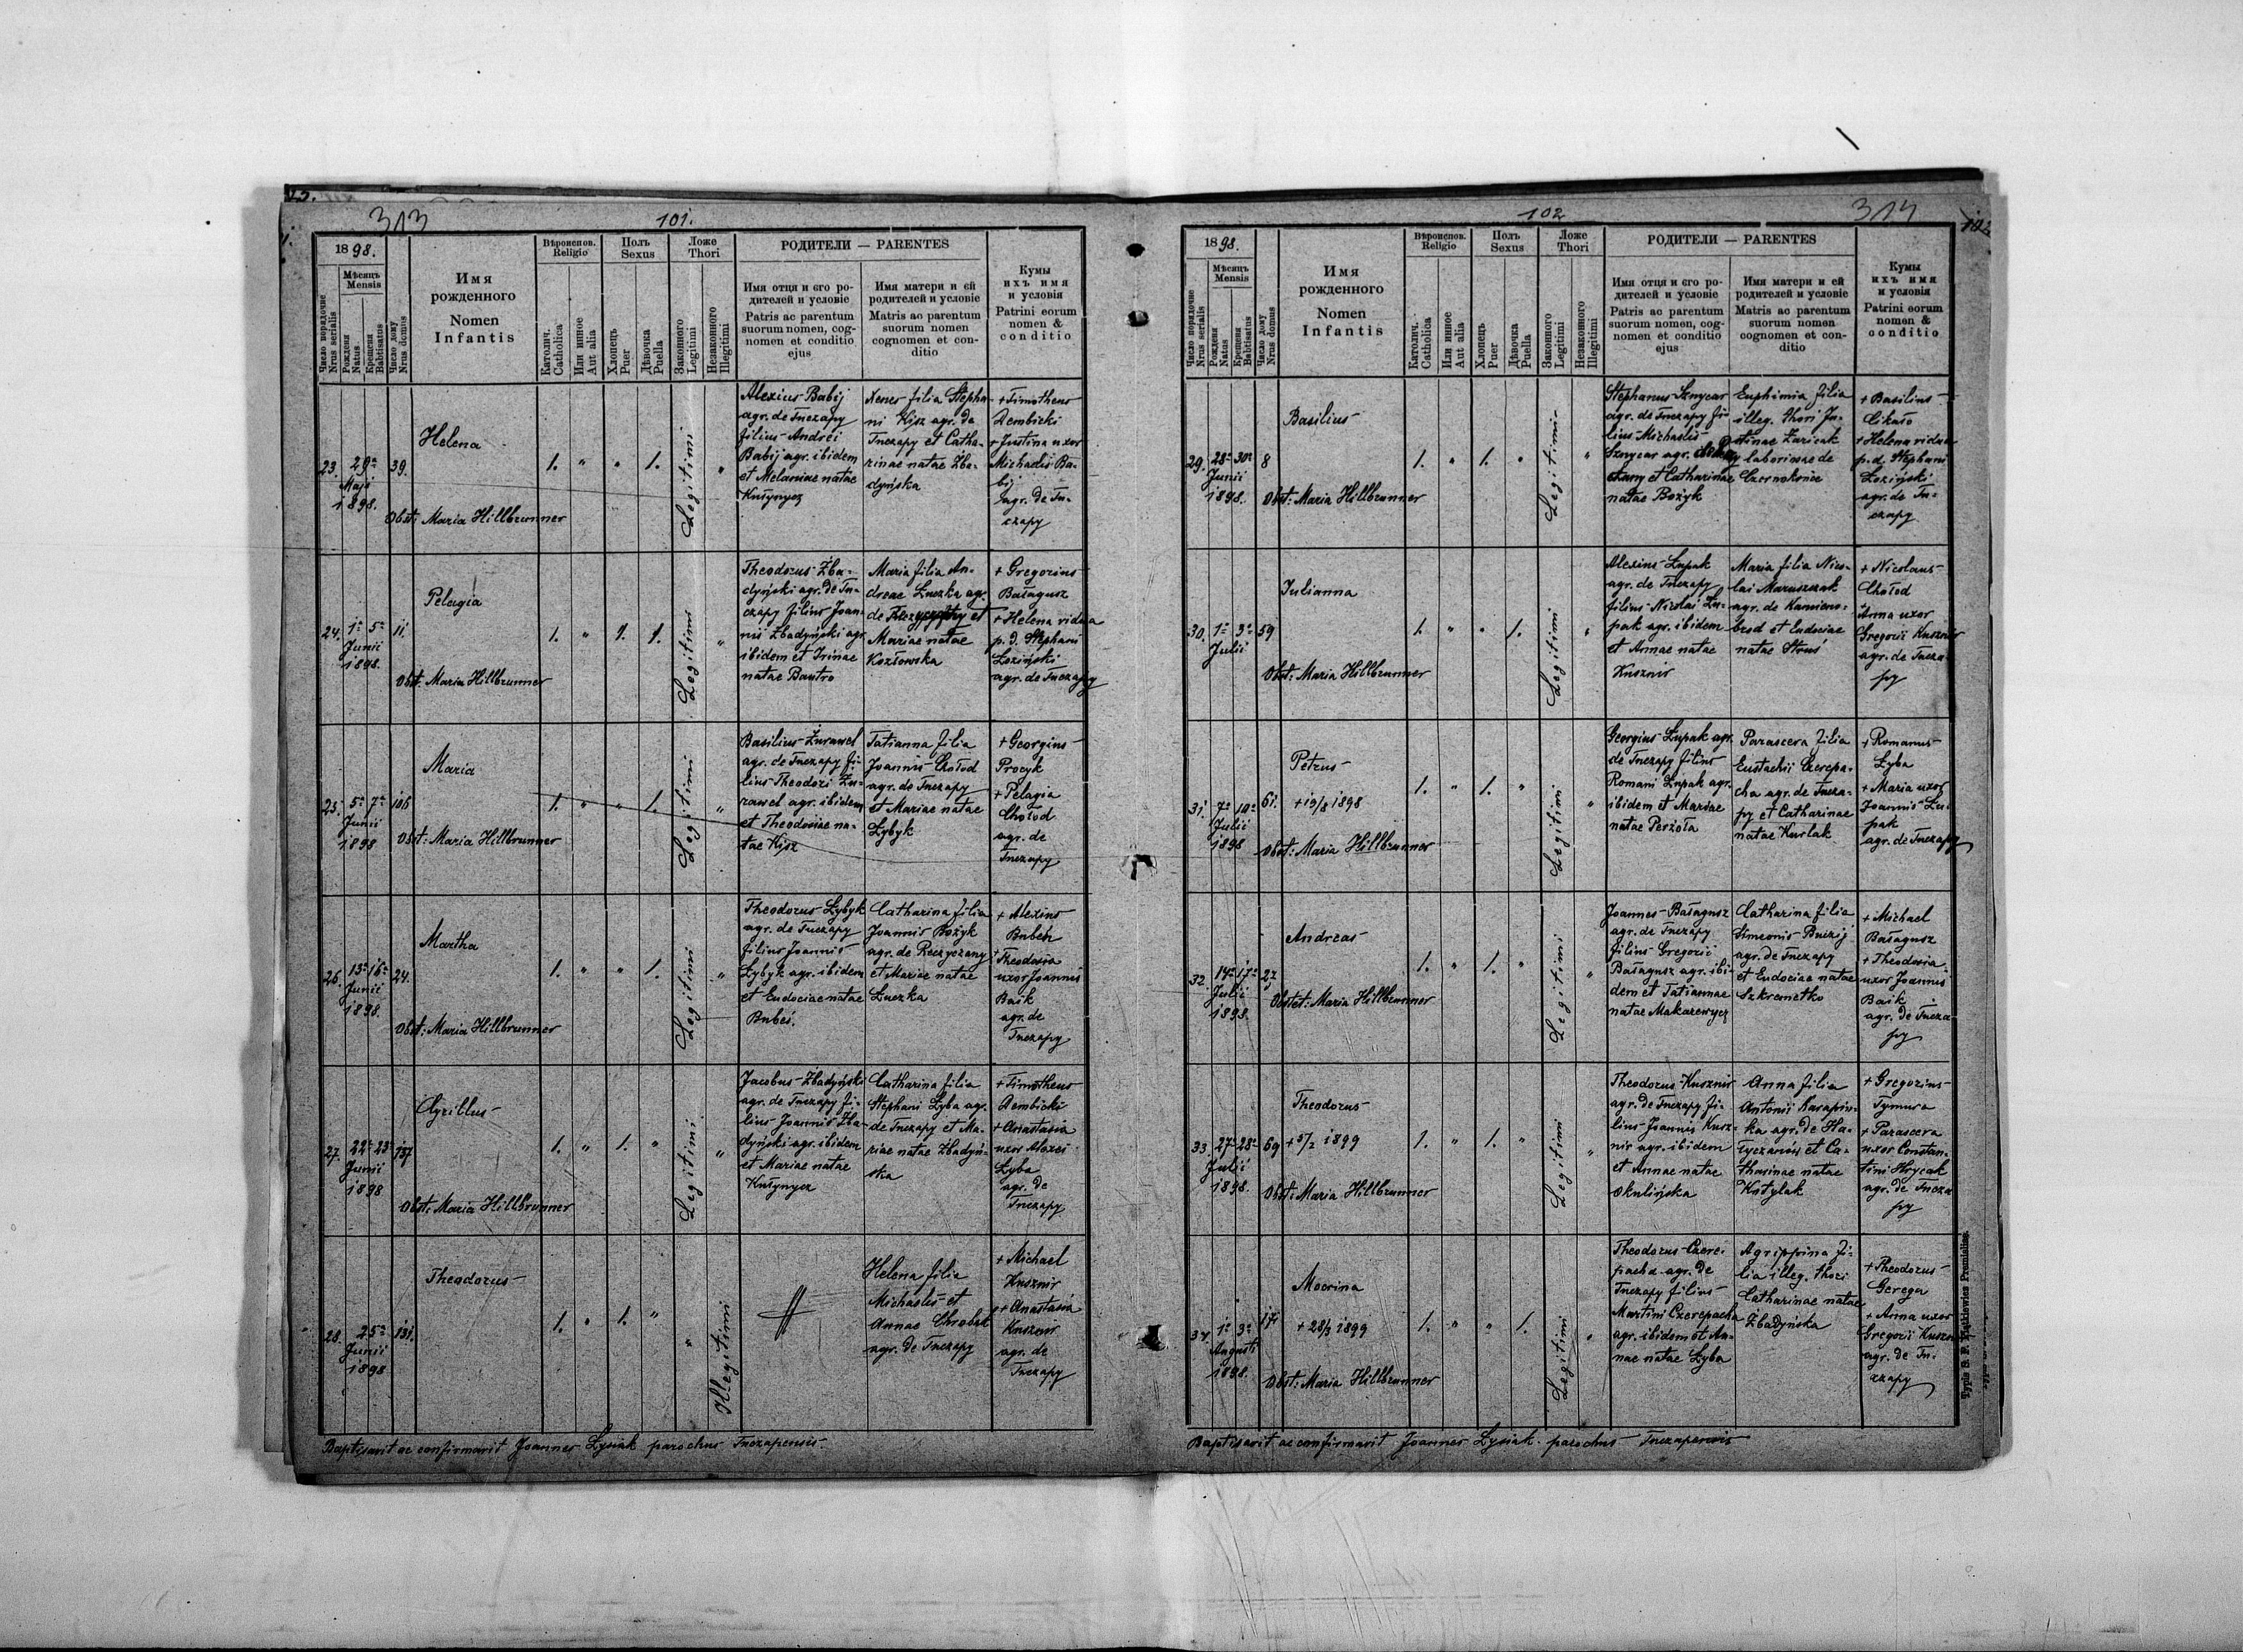 313
101.
1898.
Мѣсяцъ
Mensis
Число порядочне
Nrus serialis
Рожденя
Natus
Крещеня
Babtisatus
Число дому
Nrus domus
Имя
рожденного
Nomen
Infantis
Вѣроиспов.
Religio
Католич.
Catholica
Или инное
Aut alia
Полъ
Sexus
Хлопецъ
Puer
Дѣвочка
Puella
Ложе
Thori
Законного
Legitimi
Незаконного
Illegitimi
РОДИТЕЛИ — PARENTES
Имя отця и єго ро-
дителей и условіе
Patris ac parentum
suorum nomen, cog-
nomen et conditio
ejus
Имя матери и єй
родителей и условіе
Matris ac parentum
suorum nomen
cognomen et con-
ditio
Кумы
ихъ имя
и условія
Patrini eorum
nomen &
conditio
23.
29a
Maji
1898.
39.
Helena
Obst: Maria Hillbrunner
1. " " 1.
Legitimi
"
Alexius Babij
agr. de Tuczapy
filius Andrei
Babij agr. ibidem
et Melaniae natae
Kuřynycz
Xenes filia Stepha-
ni Kisz agr. de
Tuczapy et Catha-
rinae natae Zba-
dyńska
+ Timotheus
Dembicki
+ Justina uxor
Michaelis Ba-
bij
agr. de Tu-
czapy
24.
1a 5a
Junii
1898.
11.
Pelagia
Obst. Maria Hillbrunner
1. " 1. 1.
Legitimi
"
Theodorus Zba-
dyński agr. de Tu-
czapy filius Joan-
nis Zbadyński agr.
ibidem et Irinae
natae Bantro
Maria filia An-
dreae Łuczka agr.
de et
Mariae natae
Kozłowska
+ Gregorius
Bałagusz
+ Helena vidua
p. d. Stephani
Łoziński
agr. de Tuczapy
25.
5a 7a
Junii
1898
106
Maria
Obst: Maria Hillbrunner
1. " " 1.
Legitimi
"
Basilius Żurawel
agr. de Tuczapy fi-
lius Theodori Żu-
rawel agr. ibidem
et Theodosiae na-
tae Kisz
Tatianna filia
Joannis Chołod
agr. de Tuczapy
et Mariae natae
Łybyk
+ Georgius
Procyk
+ Pelagia
Chołod
agr. de
Tuczapy
26.
13a 16a
Junii
1898.
24.
Martha
Obst: Maria Hillbrunner
1. " " 1.
Legitimi
"
Theodorus Łybyk
agr. de Tuczapy
filius Joannis
Łybyk agr. ibidem
et Eudociae natae
Bubeś.
Catharina filia
Joannis Bożyk
agr. de Reczyczany
et Mariae natae
Łuczka
+ Alexius
Bubeń
+ Theodosia
uxor Joannis
Baik
agr. de
Tuczapy
27.
22a 23a
Junii
1898
137
Cyrillus
Obst: Maria Hillbrunner
1. " 1. "
Legitimi
"
Jacobus Zbadyński
agr. de Tuczapy fi-
lius Joannis Zba-
dyński agr. ibidem
et Mariae natae
Kuřynycz
Catharina filia
Stephani Łyba agr.
de Tuczapy et Ma-
riae natae Zbadyń-
ska
+ Timotheus
Dembicki
+ Anastasia
uxor Alexei
Łyba
agr. de
Tuczapy
28.
25a
Junii
1898
131.
Theodorus
1. " 1. "
"
Illegitimi
Helena filia
Michaelis et
Annae Chrobak
agr. de Tuczapy
+ Michael
Kusznir
+ Anastasia
Kusznir
agr. de
Tuczapy
Baptisavit ac confirmavit Joannes Łysiak parochus Tuczapensis.
102
314
1898.
Мѣсяцъ
Mensis
Число порядочне
Nrus serialis
Рожденя
Natus
Крещеня
Babtisatus
Число дому
Nrus domus
Имя
рожденного
Nomen
Infantis
Вѣроиспов.
Religio
Католич.
Catholica
Или инное
Aut alia
Полъ
Sexus
Хлопецъ
Puer
Дѣвочка
Puella
Ложе
Thori
Законного
Legitimi
Незаконного
Illegitimi
РОДИТЕЛИ — PARENTES
Имя отця и єго ро-
дителей и условіе
Patris ac parentum
suorum nomen, cog-
nomen et conditio
ejus
Имя матери и єй
родителей и условіе
Matris ac parentum
suorum nomen
cognomen et con-
ditio
Кумы
ихъ имя
и условія
Patrini eorum
nomen &
conditio
29.
28a 30a
Junii
1898.
8
Basilius
Obst: Maria Hillbrunner
1. " 1. "
Legitimi
"
Stephanus Sznycar
agr. de Tuczapy fi-
lius Michaelis
Sznycar agr.
et Catharinae
natae Bożyk
Euphimia filia
illeg. thori Ju-
stinae Zaricak
laboriosae de
Czernokonie
+ Basilius
Cikało
+ Helena vidua
p. d. Stephani
Łoziński
agr. de Tu-
czapy
30.
1a 3a
Julii
59
Iulianna
Obst: Maria Hillbrunner
1. " " 1.
Legitimi
"
Alexius Łupak
agr. de Tuczapy
filius Nicolai Łu-
pak agr. ibidem
et Annae natae
Kusznir
Maria filia Nico-
lai Maruszczak
agr. de Kamieno-
brod et Eudociae
natae Struś
+ Nicolaus
Chołod
+ Anna uxor
Gregorii Kusznir
agr. de Tucza-
py
31.
7a 10a
Julii
1898
61.
Petrus
+ 19/8 1898
Obst: Maria Hillbrunner
1. " 1. "
Legitimi
"
Georgius Łupak agr.
de Tuczapy filius
Romani Łupak agr.
ibidem et Mariae
natae Perżoła
Parascera filia
Eustachii Czerepa-
cha agr. de Tucza-
py et Catharinae
natae Kurlak
+ Romanus
Łyba
+ Maria uxor
Joannis Łu-
pak
agr. de Tuczapy
32.
14a 17a
Julii
1898.
27
Andreas
Obstet: Maria Hillbrunner
1. " 1. "
Legitimi
"
Joannes Bałagusz
agr. de Tuczapy
filius Gregorii
Bałagusz agr. ibi-
dem et Tatiannae
natae Makarewycz
Catharina filia
Simeonis Buczij
agr. de Tuczapy
et Eudociae natae
Szkrametko
+ Michael
Bałagusz
+ Theodosia
uxor Joannis
Baik
agr. de Tucza-
py
33.
27a 28a
Julii
1898.
69
Theodorus
+ 5/2 1899
Obst: Maria Hillbrunner
1. " 1. "
Legitimi
"
Theodorus Kusznir
agr. de Tuczapy fi-
lius Joannis Kusz-
nir agr. ibidem
et Annae natae
Okulińska
Anna filia
Antonii Karapin-
ka agr. de Ha-
tyczanów et Ca-
tharinae natae
Kotylak
+ Gregorius
Tymura
+ Parascera
uxor Constan-
tini Hrycak
agr. de Tucza
py
34.
1a 3a
Augusti
1898.
171
Mocrina
+ 28/3 1899
Obst: Maria Hillbrunner
1. " " 1.
Legitimi
"
Theodorus Czere-
pacha agr. de
Tuczapy filius
Martini Czerepacha
agr. ibidem et An-
nae natae Łyba
Agrippina fi-
lia illeg. thori
Catharinae natae
Zbadyńska
+ Theodorus
Gerega
+ Anna uxor
Gregorii Kusznir
agr. de Tu-
czapy
Baptisavit ac confirmavit Joannes Łysiak parochus Tuczapensis
Typis S. F. Piątkiewicz Premisliae